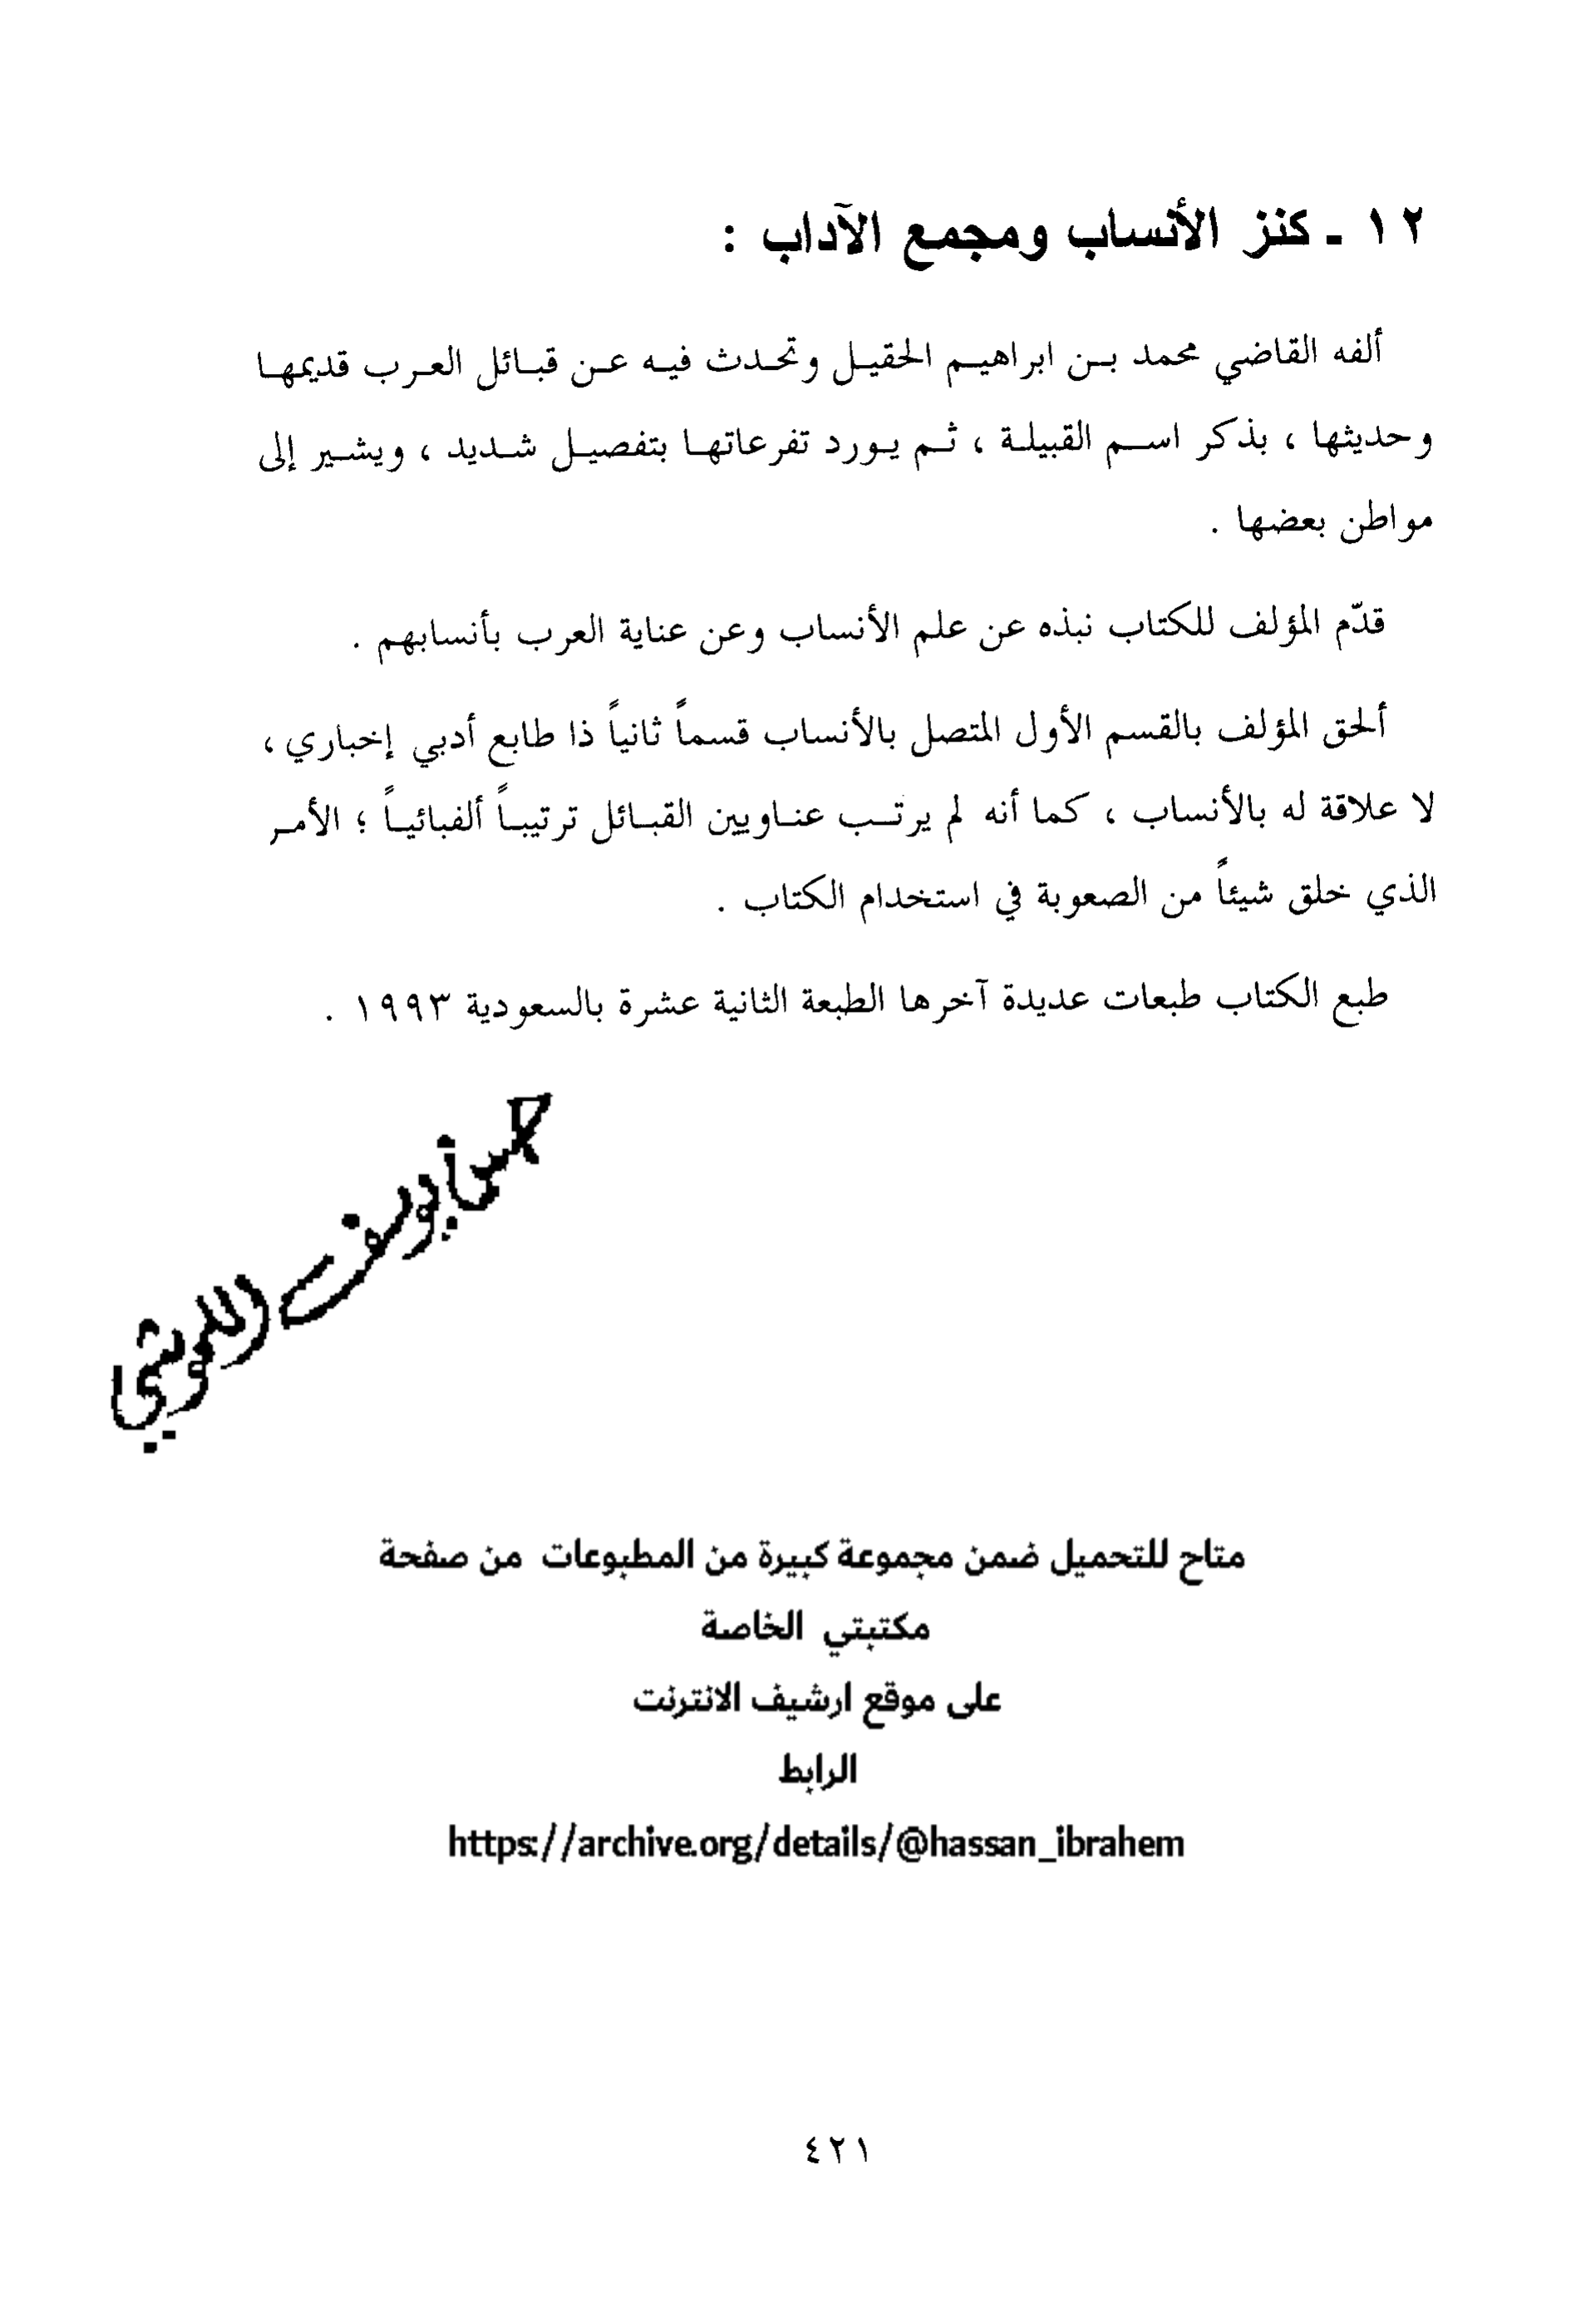 ١٢ ـ كنز الأنساب ومجمع الآداب :
ألفه القاضي محمد بن ابراهيم الحقيل وتحدث فيه عن قبائل العرب قديمها
وحديثها ، بذكر اسم القبيلة ، ثم يورد تفرعاتها بتفصيل شديد ، ويشير إلى
مواطن بعضها .
قدّم المؤلف للكتاب نبذه عن علم الأنساب وعن عناية العرب بأنسابهم .
ألحق المؤلف بالقسم الأول المتصل بالأنساب قسماً ثانياً ذا طابع أدبي إخباري ،
لا علاقة له بالأنساب ، كما أنه لم يرتب عناويين القبائل ترتيباً ألفبائياً ؛ الأمر
الذي خلق شيئاً من الصعوبة في استخدام الكتاب .
طبع الكتاب طبعات عديدة آخرها الطبعة الثانية عشرة بالسعودية ١٩٩٣ .
متاح للتحميل ضمن مجموعة كبيرة من المطبوعات من صفحة
مكتبتي الخاصة
على موقع ارشيف الانترنت
الرابط
https://archive.org/details/@hassan_ibrahem
٤٢١